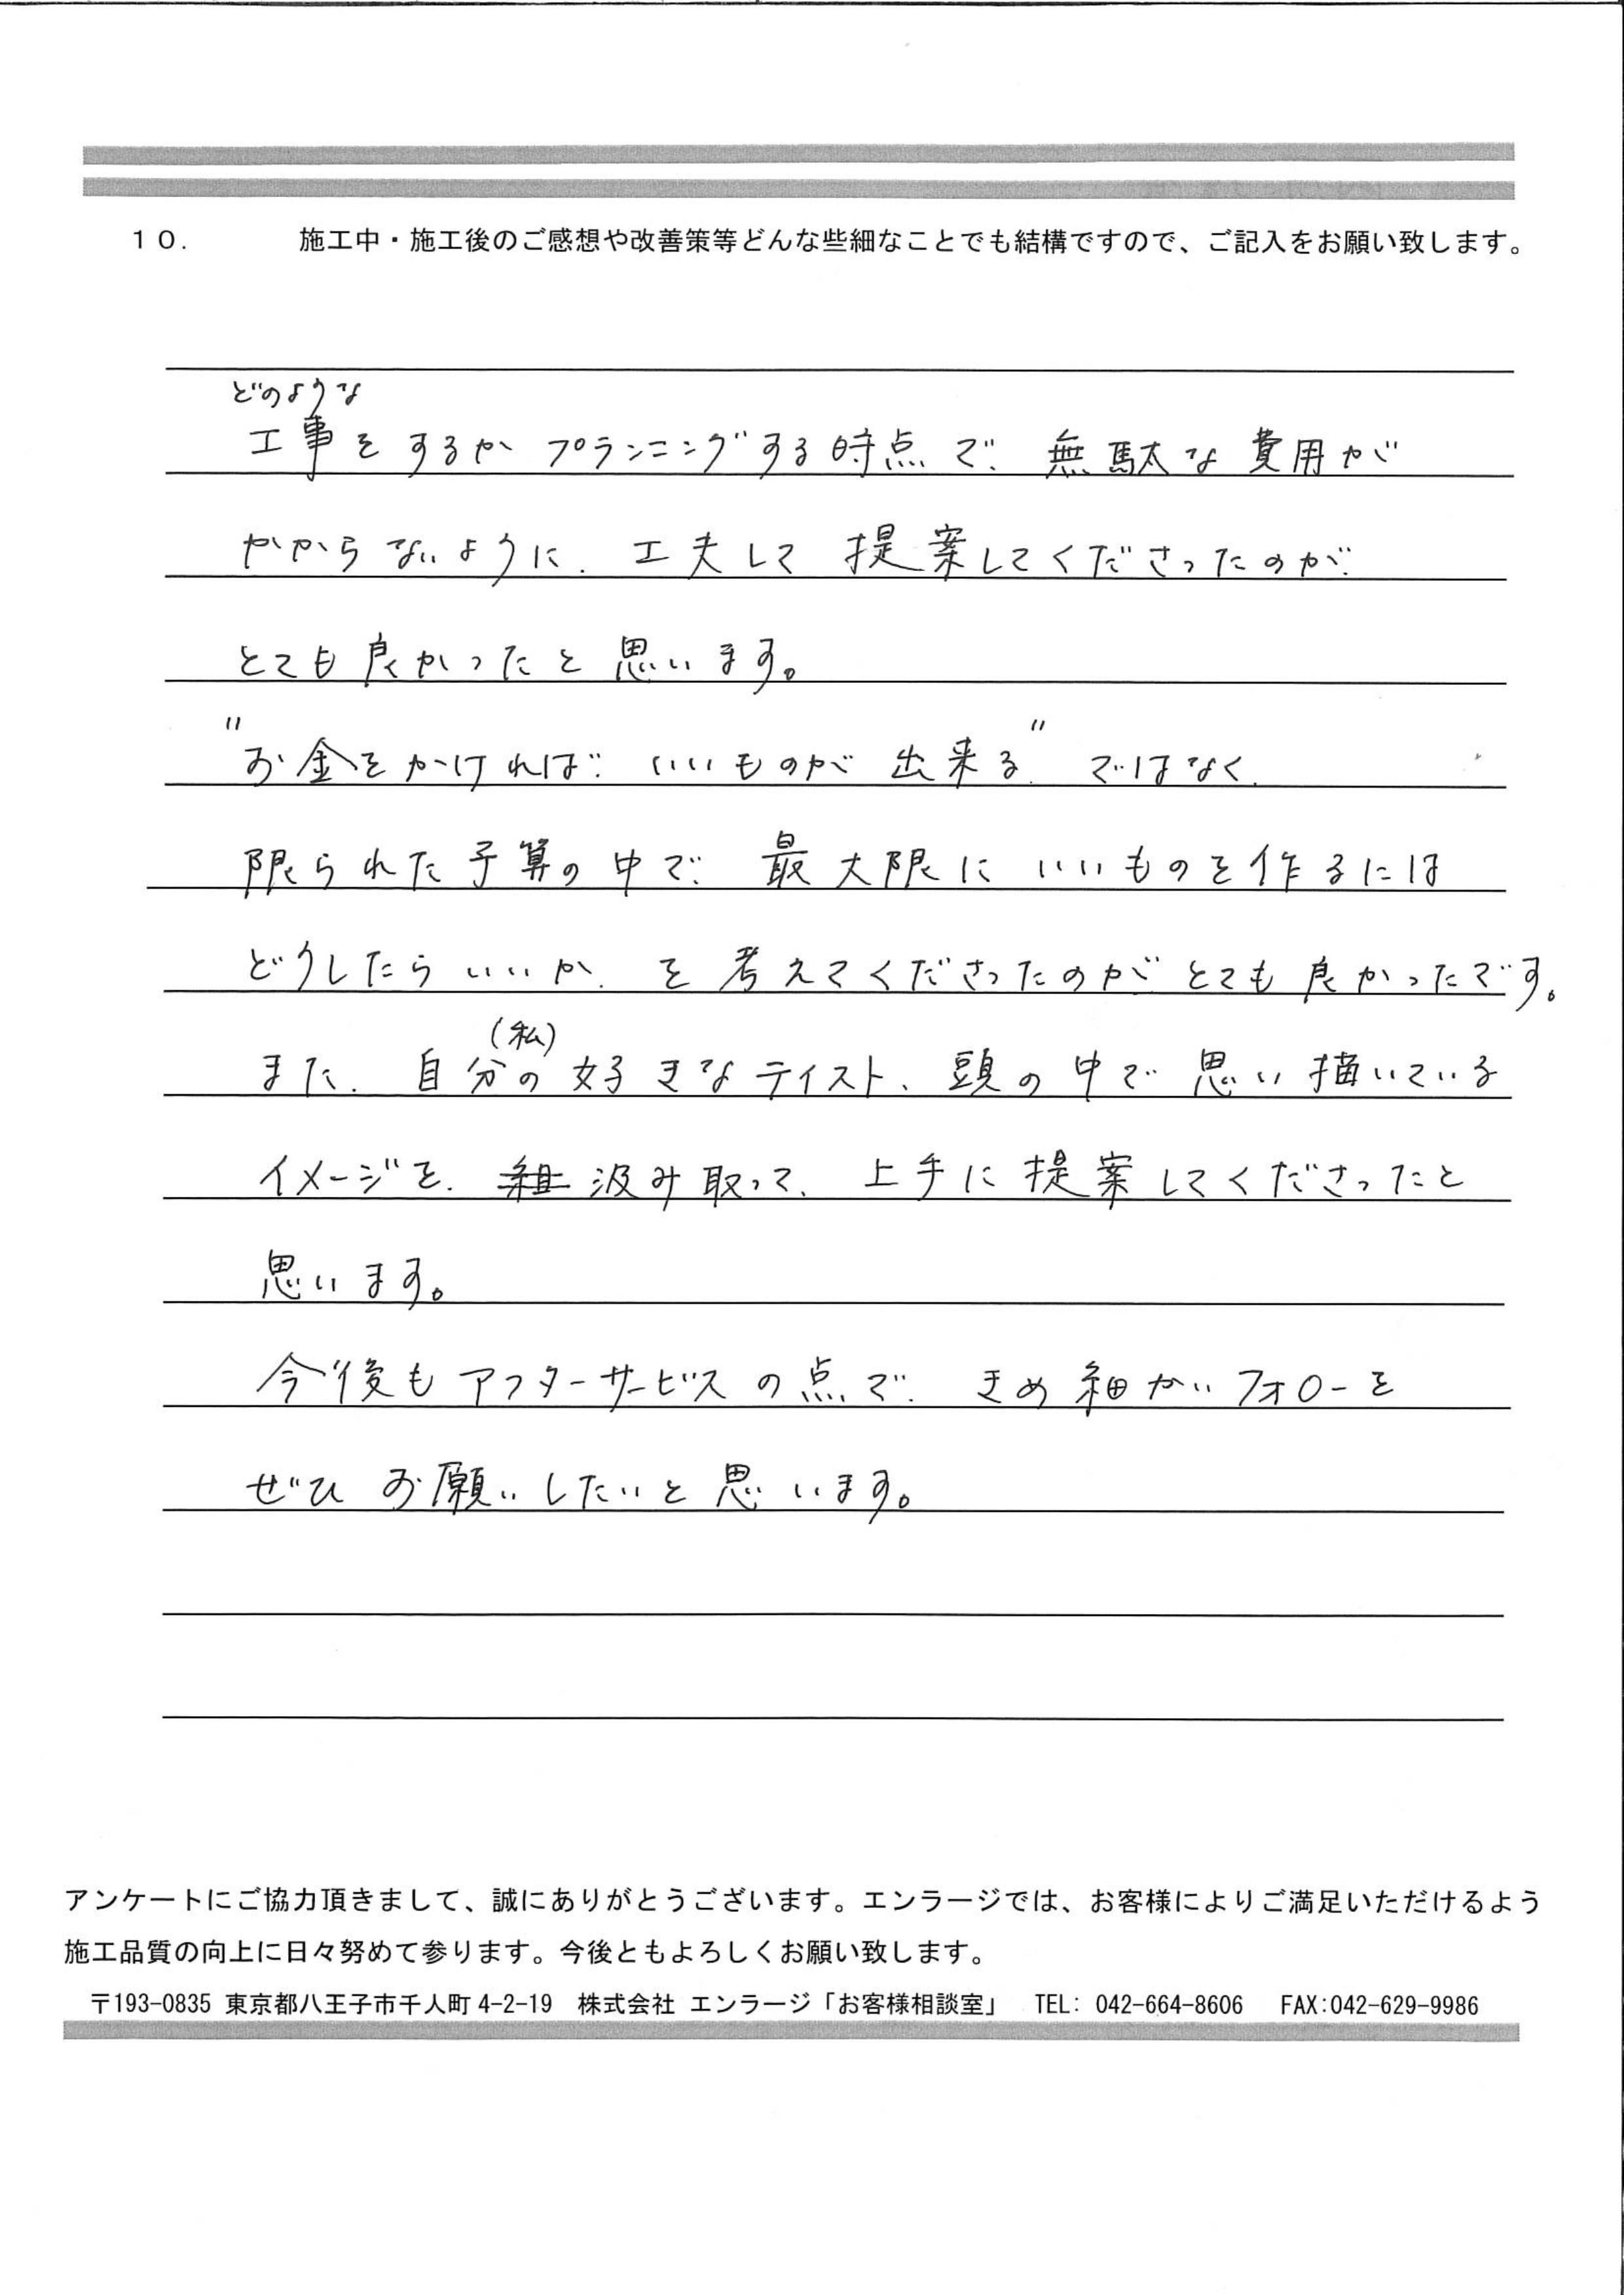 １０．　施工中・施工後のご感想や改善策等どんな些細なことでも結構ですので、ご記入をお願い致します。
どのような
工事をするかプランニングする時点で、無駄な費用が
かからないように、工夫して提案してくださったのが、
とても良かったと思います。
"お金をかければ、いいものが出来る"ではなく、
限られた予算の中で、最大限にいいものを作るには
どうしたらいいか、を考えてくださったのがとても良かったです。
(私)
また、自分の好きなテイスト、頭の中で思い描いている
イメージを、組汲み取って、上手に提案してくださったと
思います。
今後もアフターサービスの点で、きめ細かいフォローを
ぜひお願いしたいと思います。
アンケートにご協力頂きまして、誠にありがとうございます。エンラージでは、お客様によりご満足いただけるよう
施工品質の向上に日々努めて参ります。今後ともよろしくお願い致します。
〒193-0835 東京都八王子市千人町 4-2-19　株式会社 エンラージ「お客様相談室」　TEL: 042-664-8606　FAX:042-629-9986